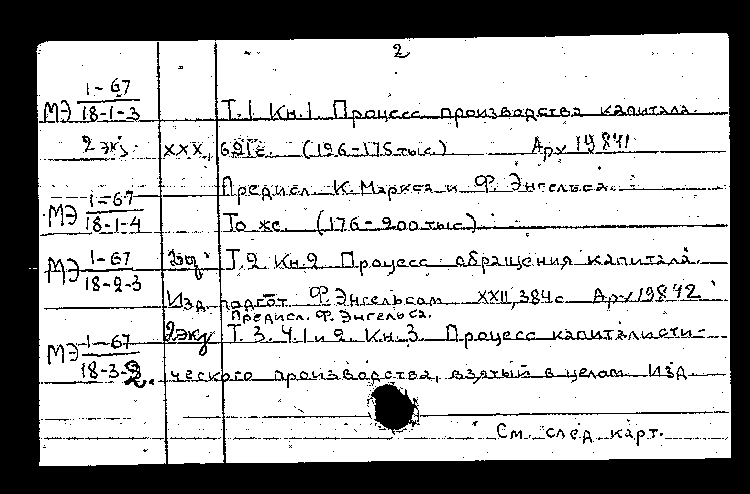 2
1-67
МЭ 18-1-3 Т.1 Кн.1 Процесс производства капитала.
2 экз XXX, 691 с. (126-175 тыс.) Арх 19841
Предисл. К. Маркса и Ф. Энгельса.
1-67
МЭ 18-1-4 То же. (176-200 тыс.)
МЭ 1-67 Т.2 Кн.2 Процесс обращения капитала.
18-2-3
Изд. подгот. Ф. Энгельсом XXII, 384 с Арх 19842
Предисл. Ф. Энгельса.
1-67 2 экз Т. 3. Ч. 1 и 2. Кн. 3. Процесс капиталисти-
МЭ 18-3-2. ческого производства, взятый в целом Изд
См. след. карт.